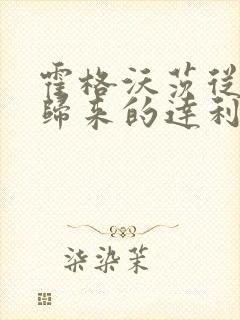 霍格沃茨從
歸來的達利
柒染茉